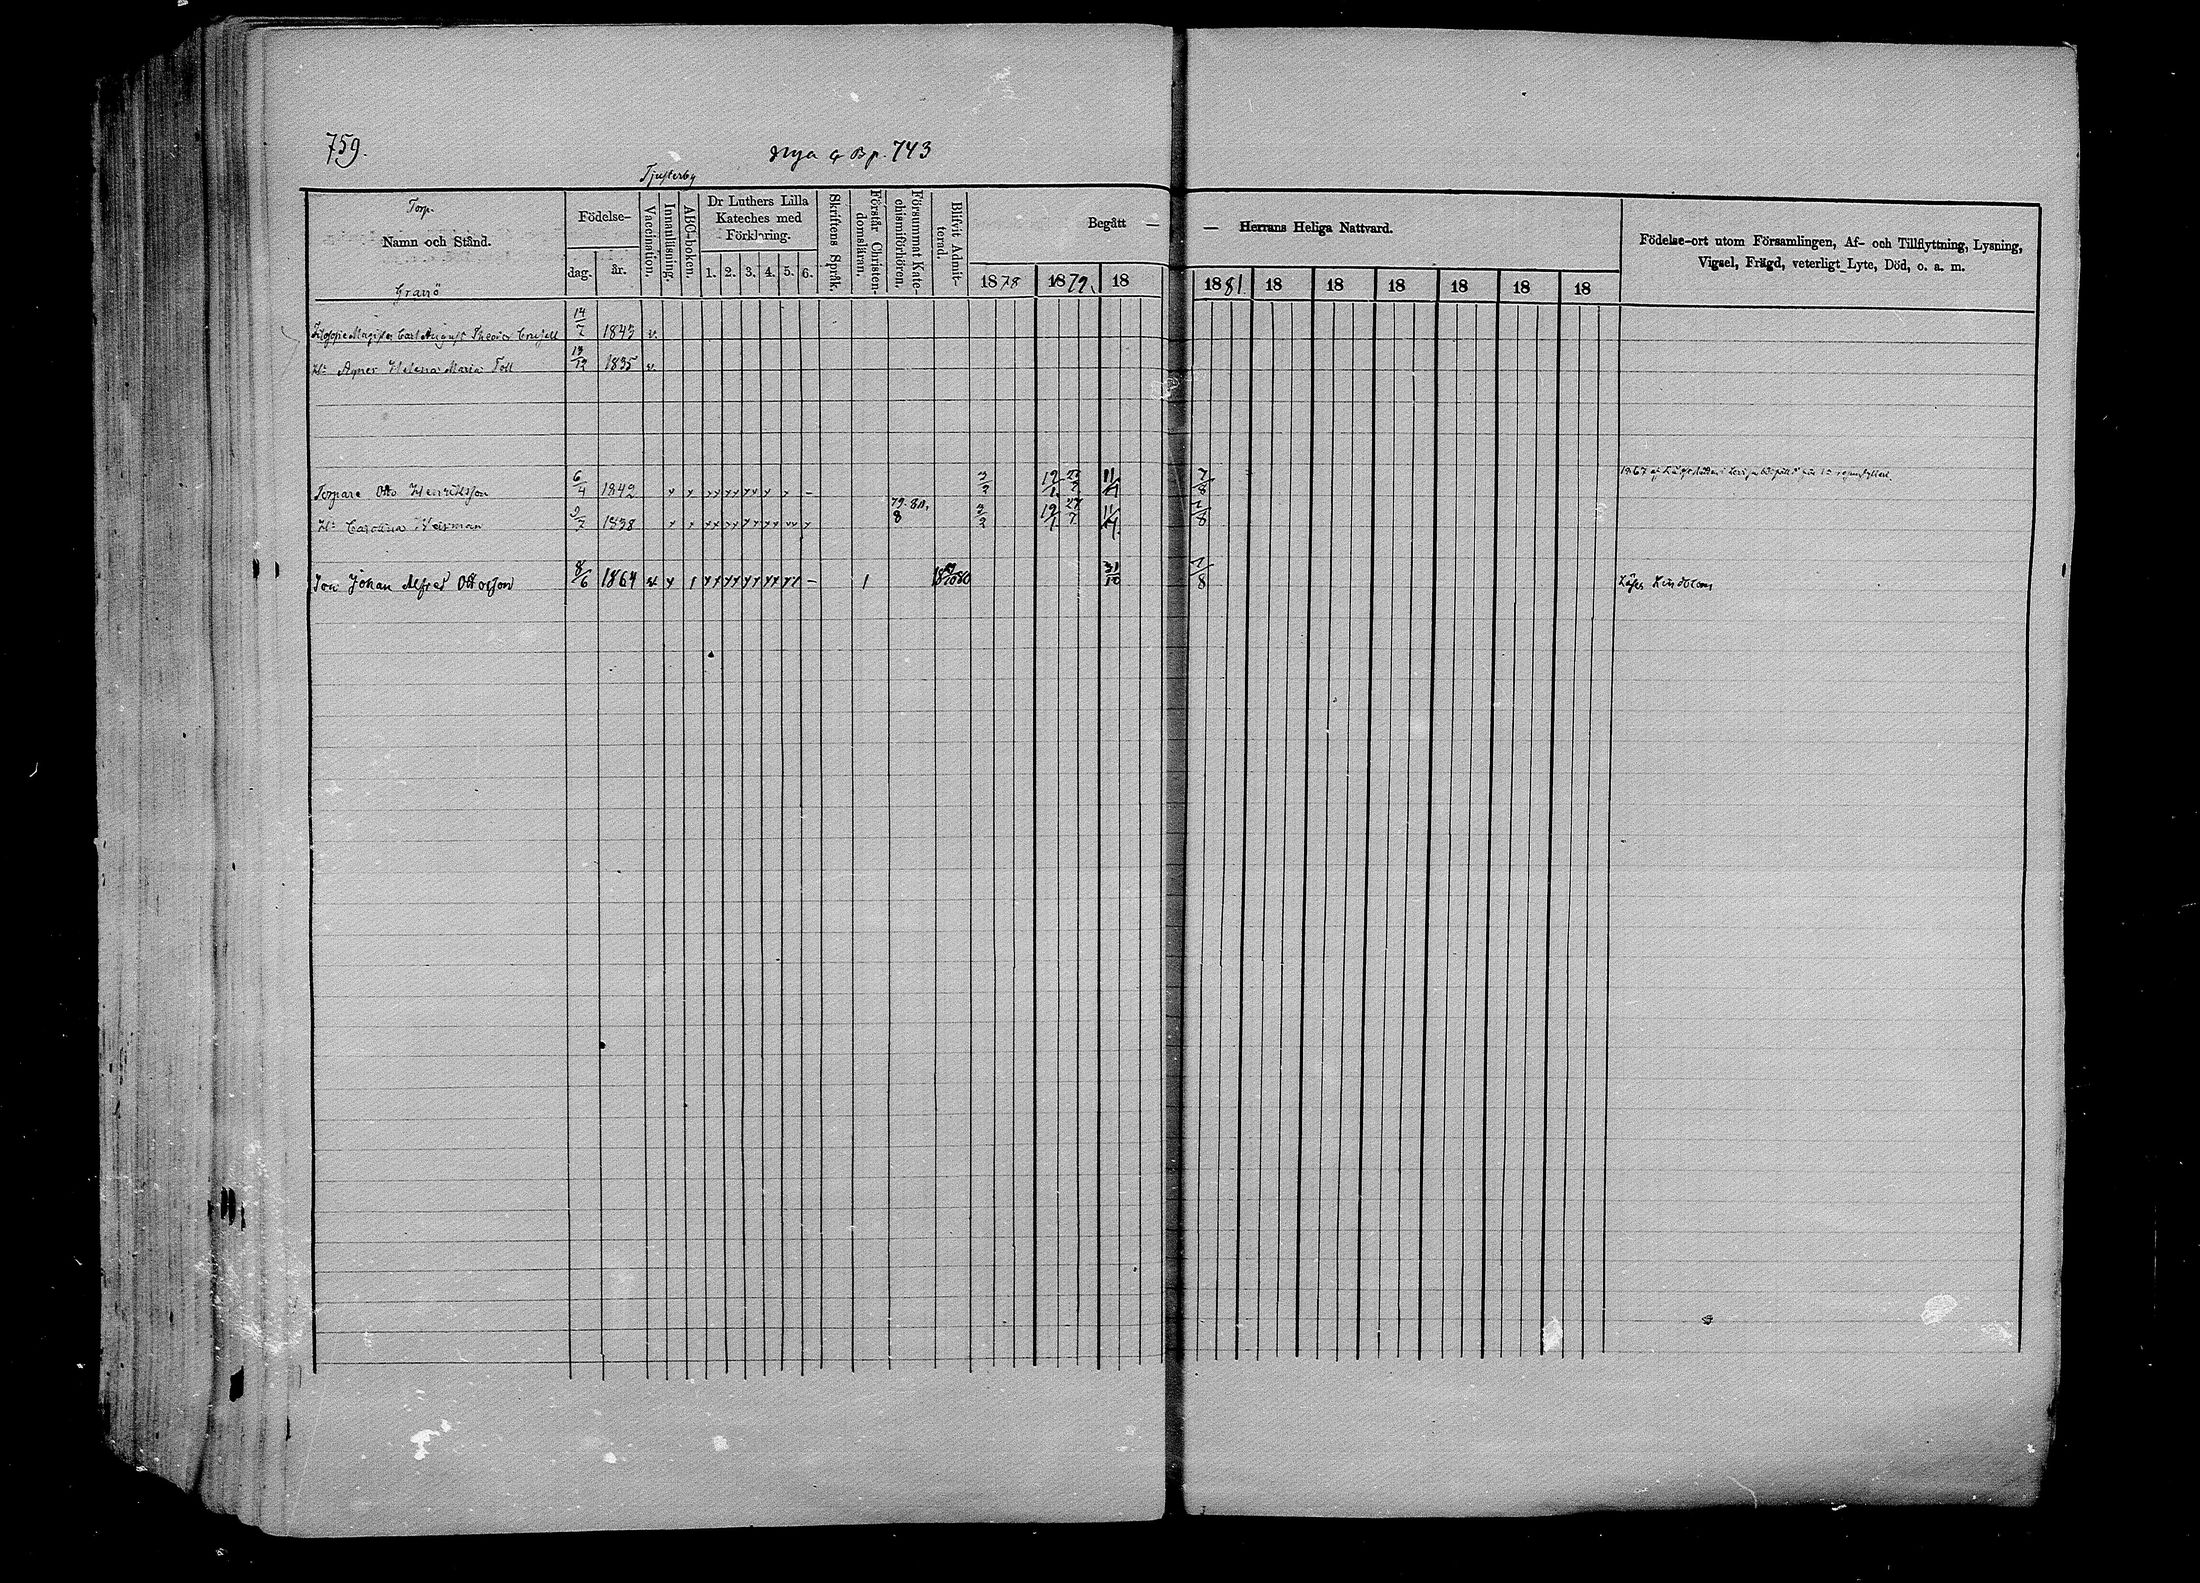 759.
Nya G Bp. 743
Tjusterby
Torp.
Namn och Stånd.
Granö
Födelse-
dag.
år.
Vaccination.
Innanläsning.
ABC-boken.
Dr Luthers Lilla
Kateches med
Förklaring.
1. 2. 3. 4. 5. 6.
Skriftens Språk.
Förstår Christen-
domsläran.
Försummat Kate-
chismiförhören.
Blifvit Admit-
terad.
Begått — — Herrans Heliga Nattvard.
1878 1879. 18 1881 18 18 18 18 18 18
Födelse-ort utom Församlingen, Af- och Tillflyttning, Lysning,
Vigsel, Frägd, veterligt Lyte, Död, o. a. m.
Carl August 14/7 1845 v.
Hu Agnes Helena Maria Toll 13/12 1835 v.
Torpare Otto Henriksson 6/4 1842 3/3 12/1 27/7 11/4 7/8
Hu Carolina 1838 79. 80. 8 3/3 12/1 27/7 11/4 7/8
Son Johan Alfred Ottosson 8/6 1864 31/10 7/8